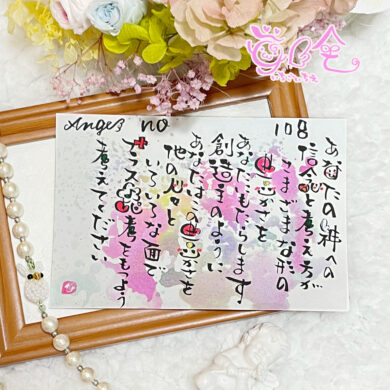 Angel no 108
あなたの神への
信念と考え方が
さまざまな形の
豊かさを
あなたにもたらします
創造主のように
あなたは豊かさを
他の人々と
いろいろな面で
プラス思考をもよう
考えてください